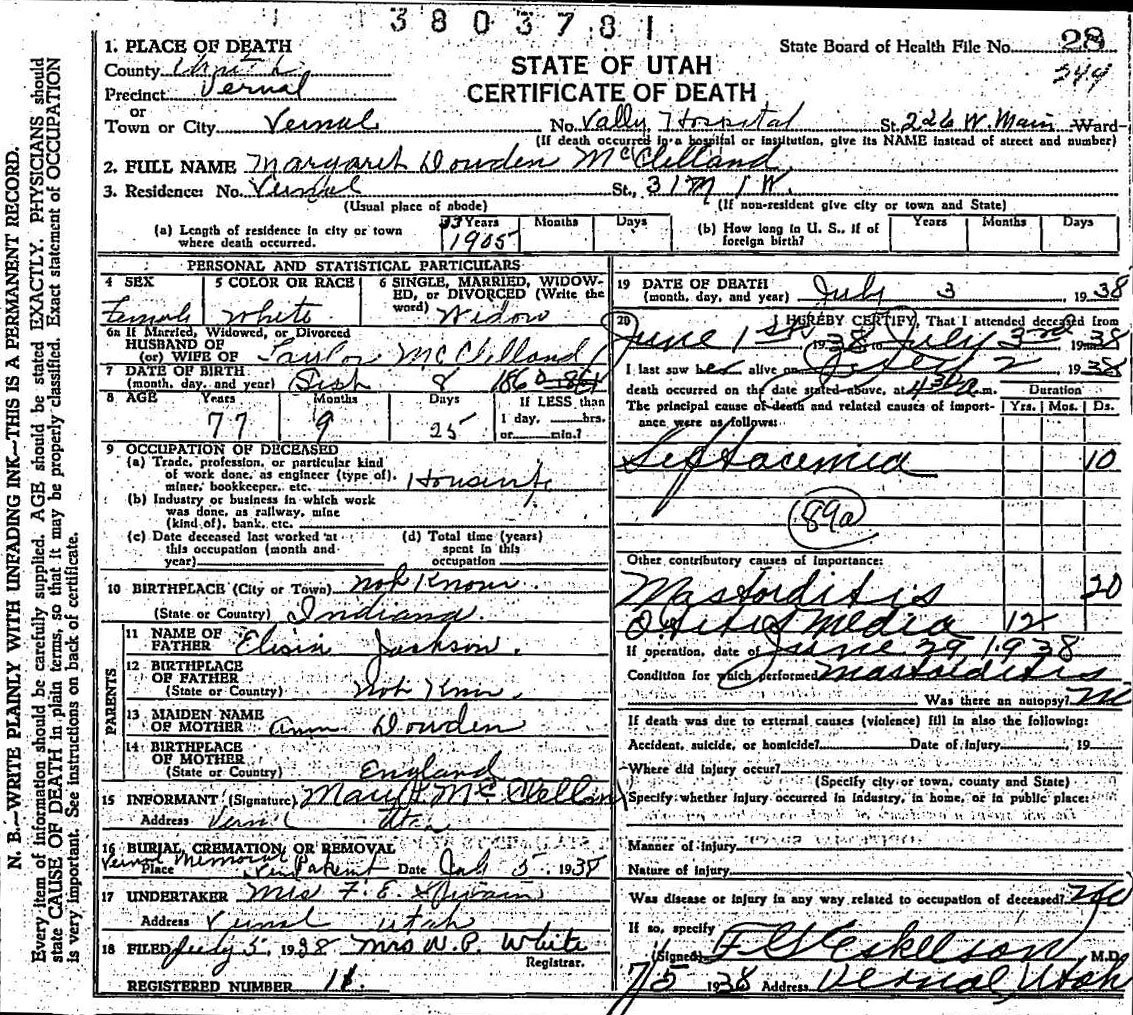 3803781
1. PLACE OF DEATH
State Board of Health File No. 28
244
County
STATE OF UTAH
Precinct Vernal
CERTIFICATE OF DEATH
or
Town or City Vernal No. Vally Hospital St. 226 W. Main Ward
(If death occurred in a hospital or institution, give its NAME instead of street and number)
2. FULL NAME Margaret Dowden McClelland
3. Residence: No. Vernal St., 31 M 1 W.
(Usual place of abode) (If non-resident give city or town and State)
(a) Length of residence in city or town where death occurred. 33 Years Months Days
1905
(b) How long in U. S., if of foreign birth? Years Months Days
PERSONAL AND STATISTICAL PARTICULARS
4 SEX 5 COLOR OR RACE 6 SINGLE, MARRIED, WIDOW-
ED, or DIVORCED (Write the
word) Widow
Female White
6a If Married, Widowed, or Divorced
HUSBAND OF
(or) WIFE OF Taylor McClelland
7 DATE OF BIRTH
(month, day, and year) 8 1860
8 AGE Years Months Days If LESS than
1 day, hrs.
77 9 25 or min.?
9 OCCUPATION OF DECEASED
(a) Trade, profession, or particular kind
of work done, as engineer (type of),
miner, bookkeeper, etc. Housewife
(b) Industry or business in which work
was done, as railway, mine
(kind of), bank, etc.
(c) Date deceased last worked at
this occupation (month and
year)
(d) Total time (years)
spent in this
occupation
10 BIRTHPLACE (City or Town) Not Known
(State or Country) Indiana
PARENTS
11 NAME OF
FATHER Jackson.
12 BIRTHPLACE
OF FATHER
(State or Country) Not Kno.
13 MAIDEN NAME
OF MOTHER Ann Dowden
14 BIRTHPLACE
OF MOTHER
(State or Country) England
15 INFORMANT (Signature) McClellan
Address Vernal Utah
16 BURIAL, CREMATION, OR REMOVAL
Vernal Memorial
Place Date July 5, 1938
17 UNDERTAKER Mrs F. E.
Address Vernal Utah
18 FILED July 5, 1938 Mrs W. P. White
Registrar.
REGISTERED NUMBER 11.
19 DATE OF DEATH
(month, day, and year) July 3 1938
20 I HEREBY CERTIFY, That I attended deceased from
June 1st 1938 to July 3rd 1938
I last saw her alive on July 2 1938
death occurred on the date stated above, at m. Duration
The principal cause of death and related causes of import- Yrs. Mos. Ds.
ance were as follows:
Septacemia 10
89a
Other contributory causes of importance:
Mastoiditis 20
Otitis Media 12
If operation, date of June 29 1938
Condition for which performed Mastoiditis
Was there an autopsy?
If death was due to external causes (violence) fill in also the following:
Accident, suicide, or homicide? Date of injury 19
Where did injury occur?
(Specify city or town, county and State)
Specify whether injury occurred in industry, in home, or in public place:
Manner of injury
Nature of injury
Was disease or injury in any way related to occupation of deceased? No
If so, specify
(Signed) M.D.
7/5 1938 Address Vernal, Utah
N. B.—WRITE PLAINLY WITH UNFADING INK—THIS IS A PERMANENT RECORD.
Every item of information should be carefully supplied. AGE should be stated EXACTLY. PHYSICIANS should
state CAUSE OF DEATH in plain terms, so that it may be properly classified. Exact statement of OCCUPATION
is very important. See instructions on back of certificate.